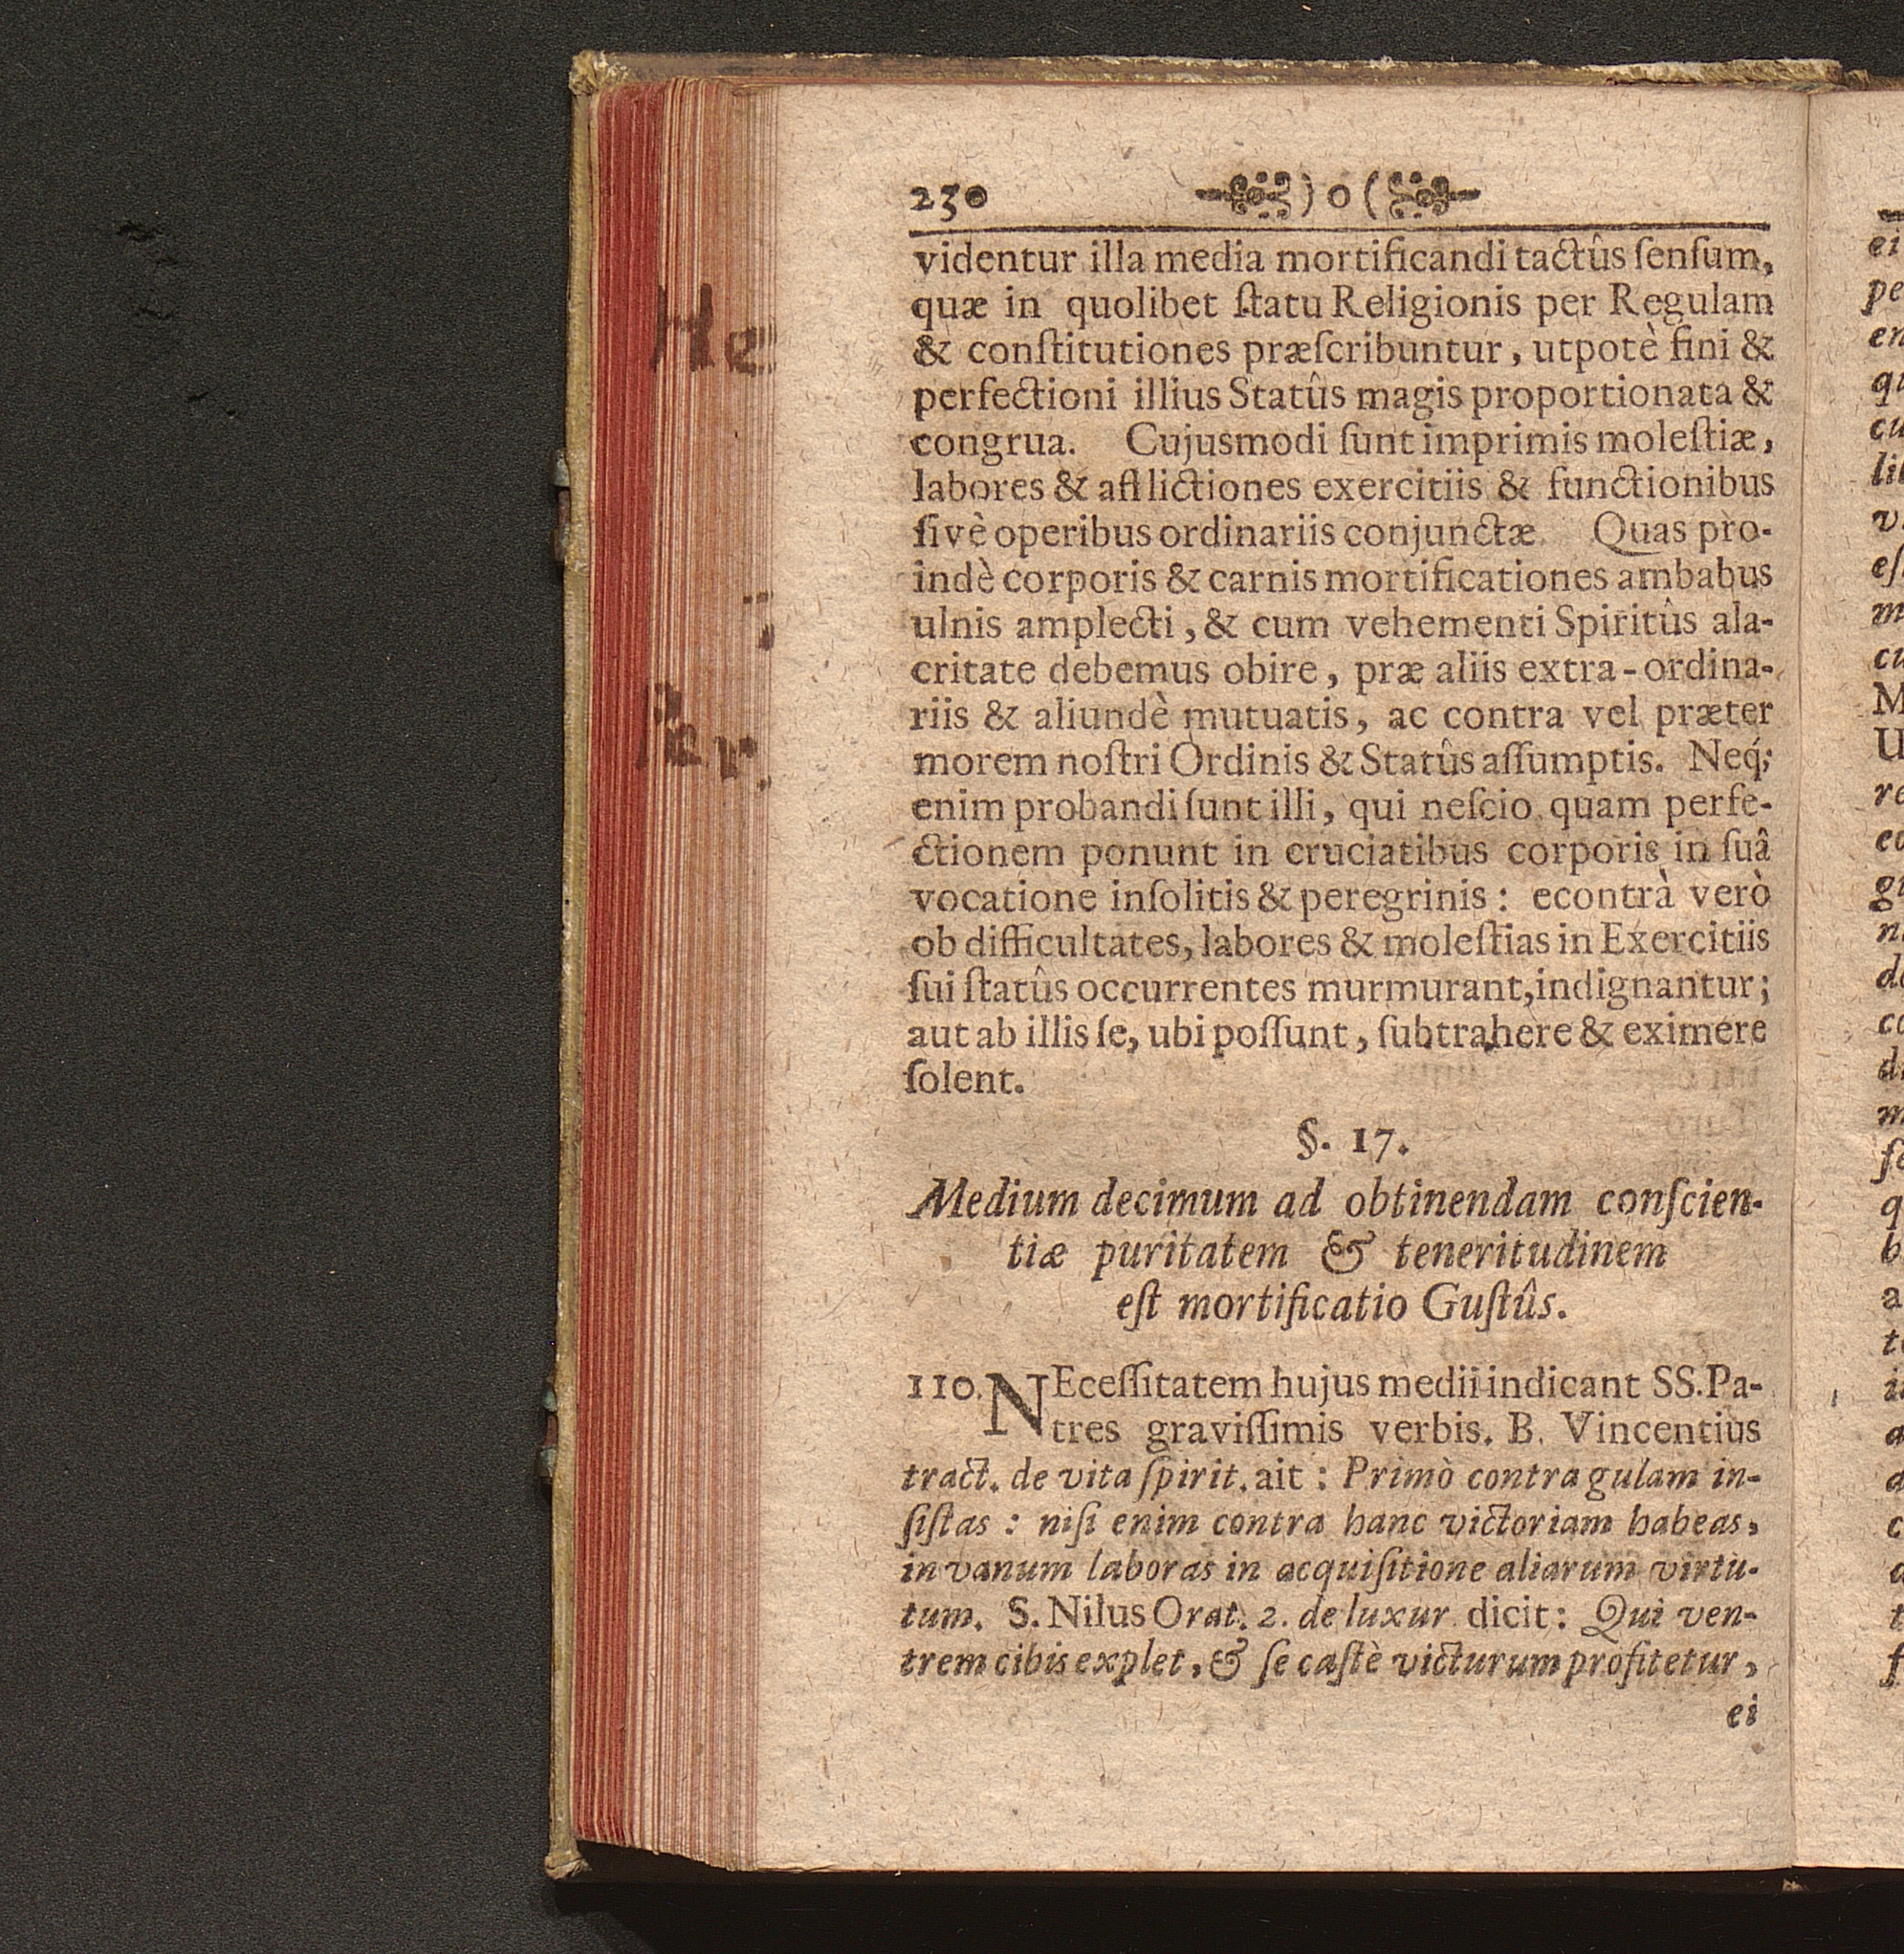 230 ) o (
videntur illa media mortificandi tactûs ſenſum,
quæ in quolibet ſtatu Religionis per Regulam
& conſtitutiones præſcribuntur, utpotè fini &
perfectioni illius Statûs magis proportionata &
congrua. Cujusmodi ſunt imprimis moleſtiæ,
labores & afflictiones exercitiis & functionibus
ſivè operibus ordinariis conjunctæ. Quas pro-
indè corporis & carnis mortificationes ambabus
ulnis amplecti, & cum vehementi Spiritûs ala-
critate debemus obire, præ aliis extra-ordina-
riis & aliundè mutuatis, ac contra vel præter
morem noſtri Ordinis & Statûs aſſumptis. Neq́;
enim probandi ſunt illi, qui neſcio quam perfe-
ctionem ponunt in cruciatibus corporis in ſuâ
vocatione inſolitis & peregrinis: econtrà verò
ob difficultates, labores & moleſtias in Exercitiis
ſui ſtatûs occurrentes murmurant, indignantur;
aut ab illis ſe, ubi poſſunt, ſubtrahere & eximere
ſolent.
§. 17.
Medium decimum ad obtinendam conſcien-
tiæ puritatem & teneritudinem
eſt mortificatio Guſtûs.
110. NEceſſitatem hujus medii indicant SS. Pa-
tres graviſſimis verbis. B. Vincentius
tract. de vita ſpirit. ait: Primò contra gulam in-
ſiſtas: niſi enim contra hanc victoriam habeas,
in vanum laboras in acquiſitione aliarum virtu-
tum. S. Nilus Orat. 2. de luxur dicit: Qui ven-
trem cibis explet, & ſe caſtè victurum profitetur,
ei